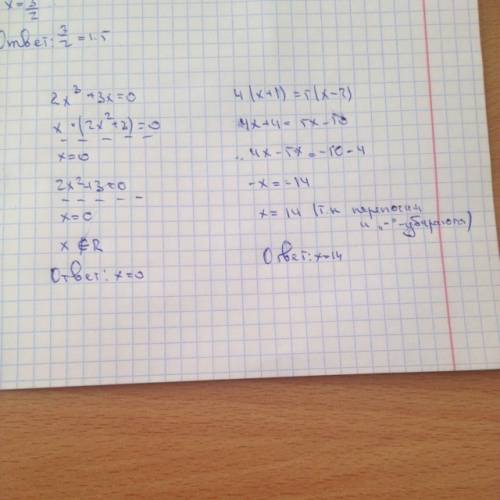 x = 3/2
Ответ: 3/2 = 1.5
2x³ + 3x = 0
x · (2x² + 3) = 0
x = 0
2x² + 3 = 0
x = 0
x ∉ R
Ответ: x = 0
4(x+1) = 5(x-2)
4x+4 = 5x-10
4x - 5x = -10 - 4
-x = -14
x = 14 (т.к
и „-"
Ответ: x = 14